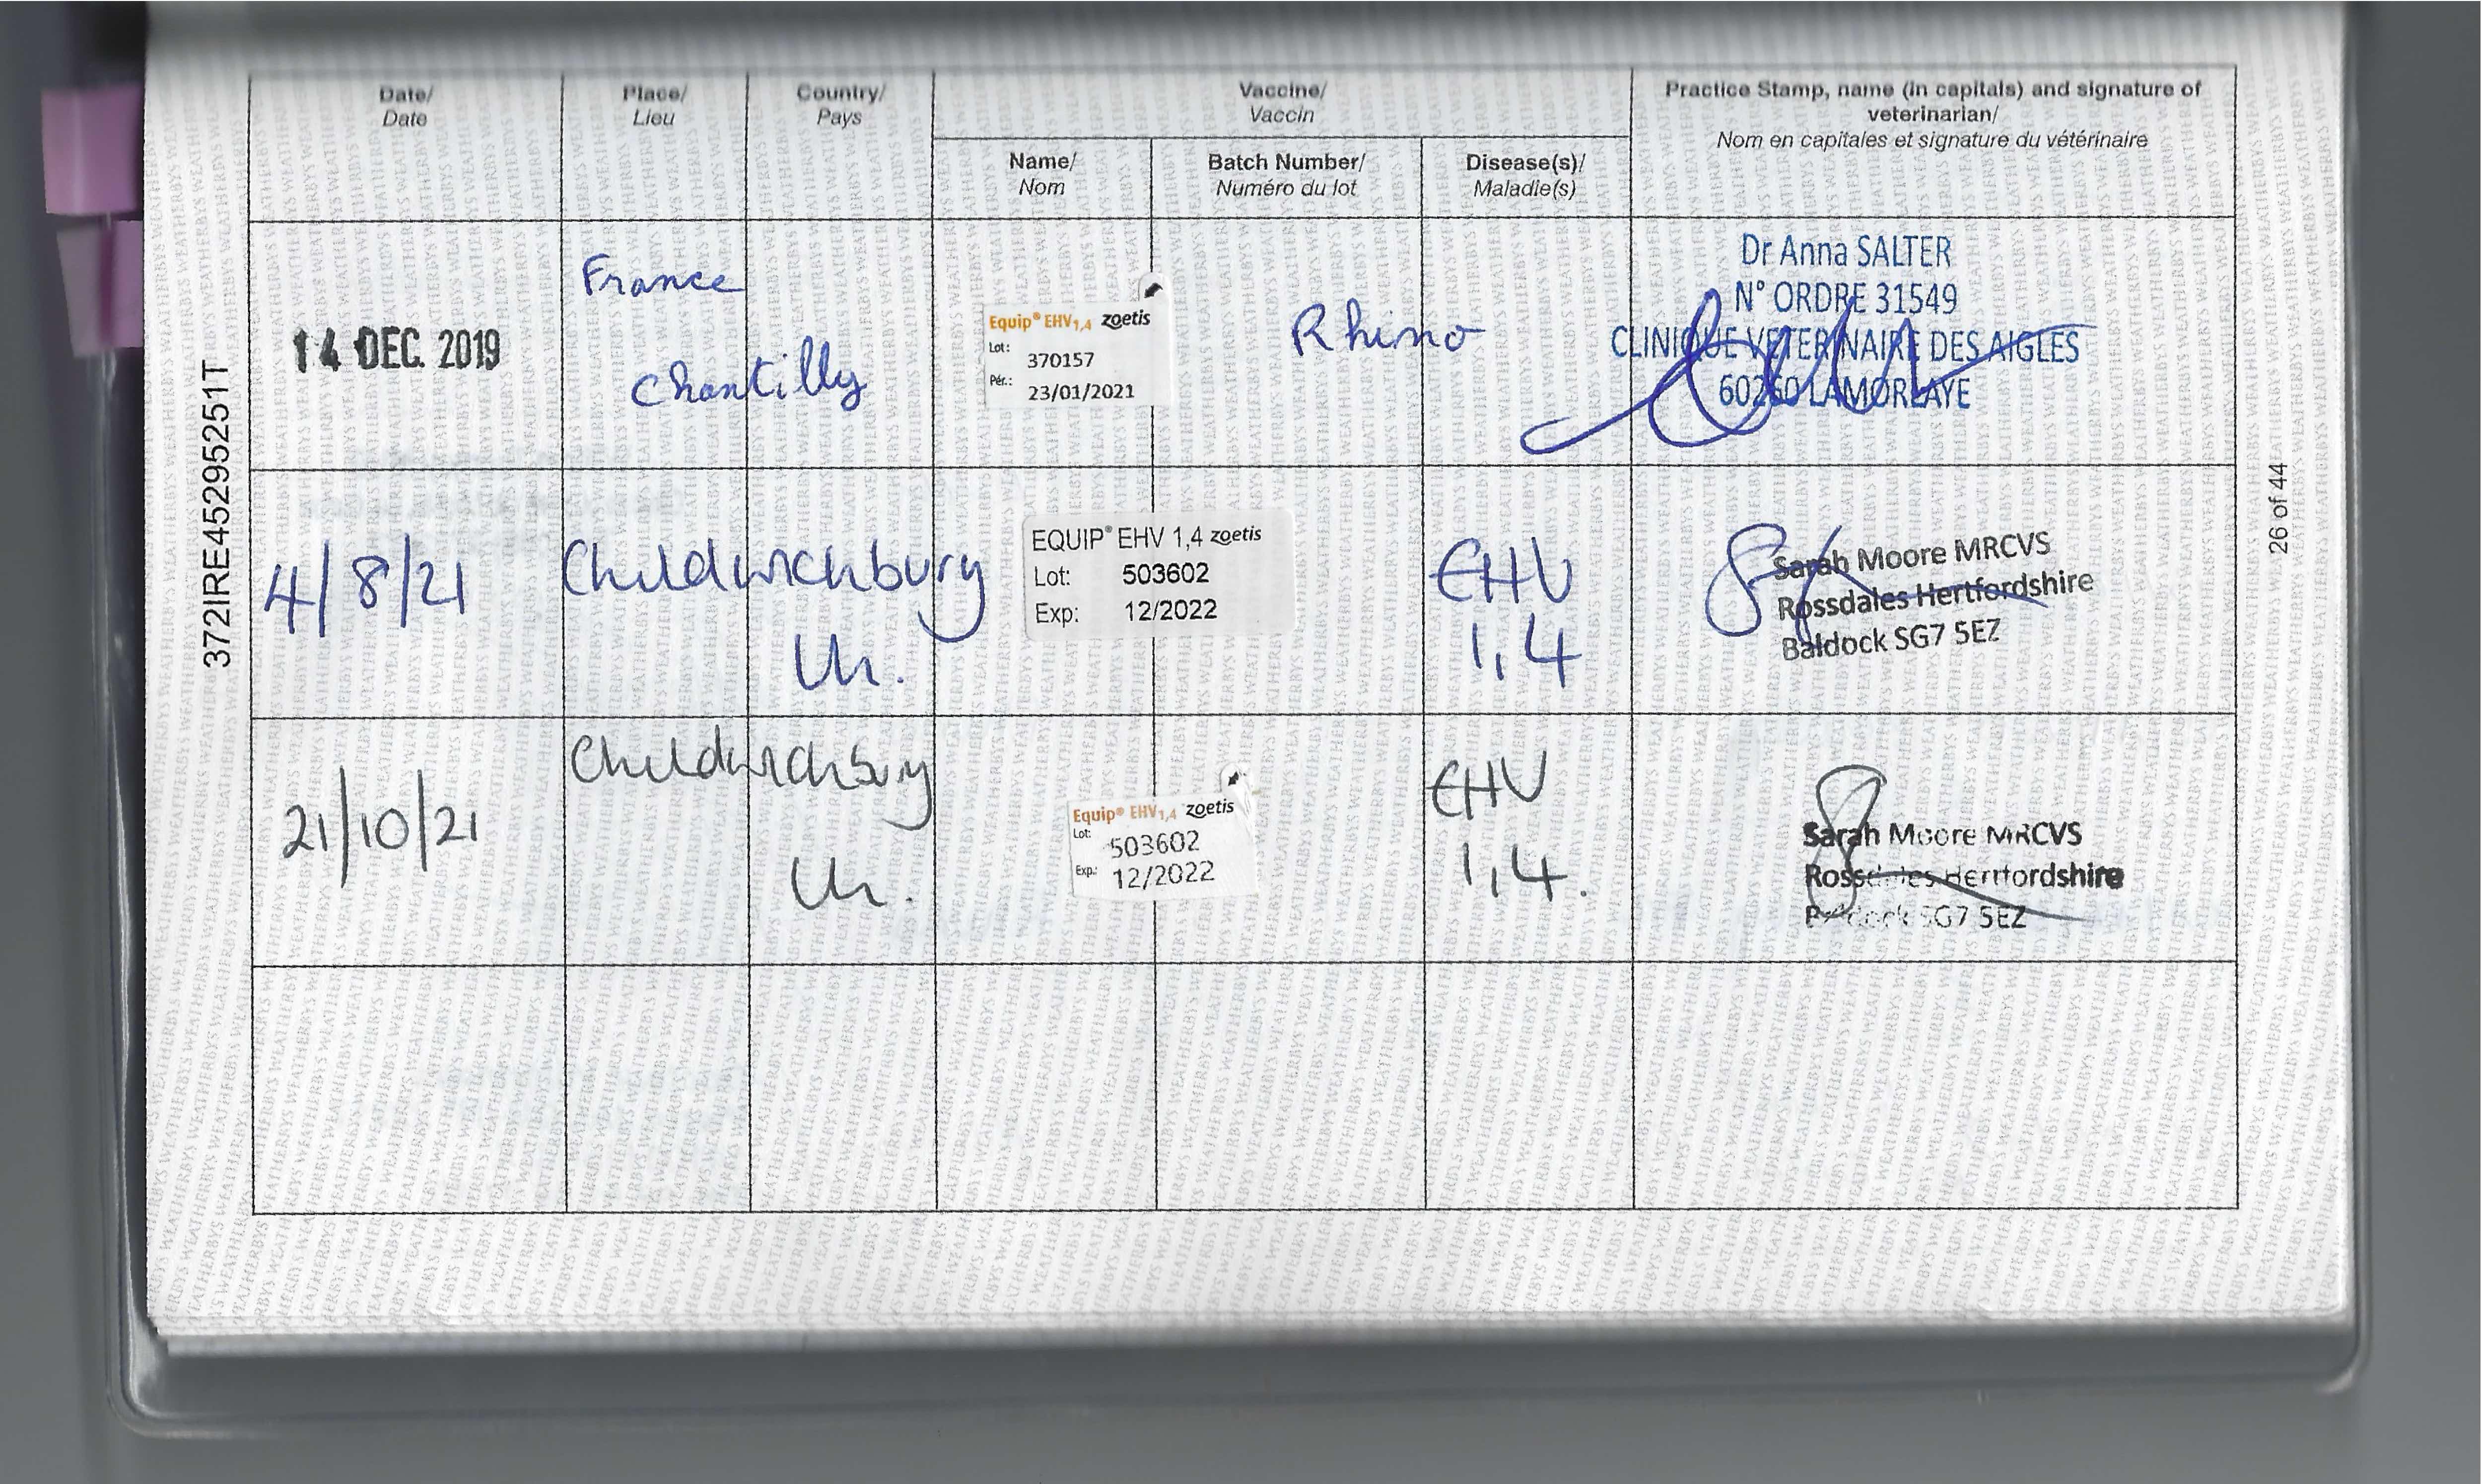 Date/
Date
Place/
Lieu
Country/
Pays
Vaccine/
Vaccin
Name/
Nom
Batch Number/
Numéro du lot
Disease(s)/
Maladie(s)
Practice Stamp, name (in capitals) and signature of
veterinarian/
Nom en capitales et signature du vétérinaire
14 DEC. 2019
France
Chantilly
Equip® EHV1,4 zoetis
Lot:
370157
Pér.:
23/01/2021
Rhino
Dr Anna SALTER
N° ORDRE 31549
CLINIQUE VETERINAIRE DES AIGLES
60260 LAMORLAYE
4/8/21
Childwickbury
Uk.
EQUIP® EHV 1,4 zoetis
Lot: 503602
Exp: 12/2022
EHV
1,4
Sarah Moore MRCVS
Rossdales Hertfordshire
Baldock SG7 5EZ
21/10/21
Childwickbury
Uk.
Equip® EHV1,4 zoetis
Lot:
503602
Exp.: 12/2022
EHV
1,4.
Sarah Moore MRCVS
Rossdales Hertfordshire
Baldock SG7 5EZ
372IRE45295251T
26 of 44
WEATHERBYS